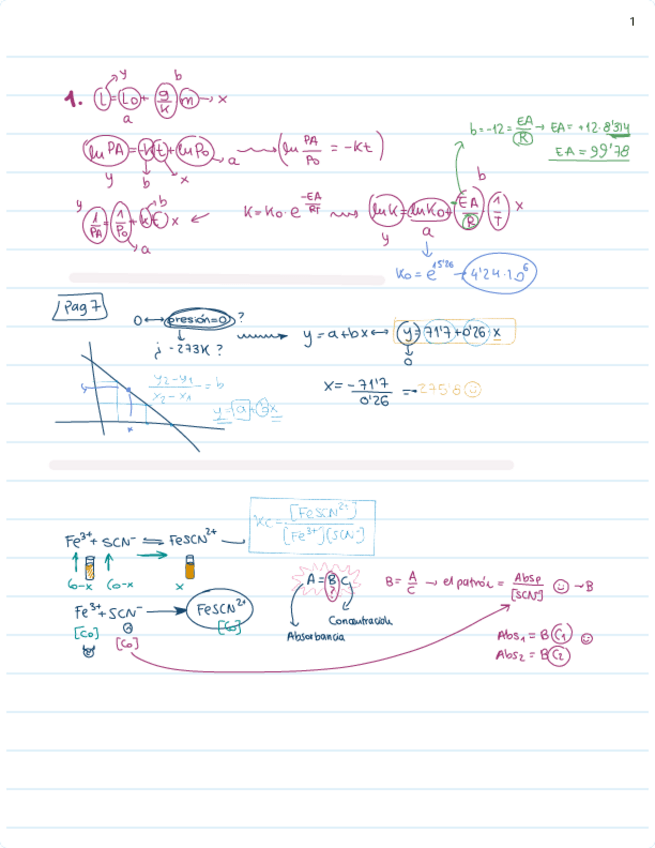 1
1. l = l₀ + g/k m → x
y
b
a
ln PA = -kt + ln P₀ ⟿ (ln PA/P₀ = -Kt)
y b x a
b = -12 = EA/R → EA = +12·8'314
EA = 99'78
1/PA = 1/P₀ + kt x ← K = K₀·e^(-EA/RT) ⟿ ln K = ln K₀ + -EA/R · 1/T x
y b a
y a b
K₀ = e^15'26 → 4'24·10⁶
Pag 7
0 ↔ presión=0 ?
¿ -273K ?
y = a+bx ↔ y = 71'7 + 0'26·x
0
y₂-y₁/x₂-x₁ = b
y = a + bx
x = -71'7/0'26 = -275'8
Kc = [FeSCN²⁺]/[Fe³⁺][SCN⁻]
Fe³⁺ + SCN⁻ ⇌ FeSCN²⁺
Co-x Co-x x
A = B C
?
Absorbancia
Concentración
B = A/C → el patrón = Absp/[SCN⁻] → B
Fe³⁺ + SCN⁻ → FeSCN²⁺
[Co] [Co] [Co]
Abs₁ = B C₁
Abs₂ = B C₂